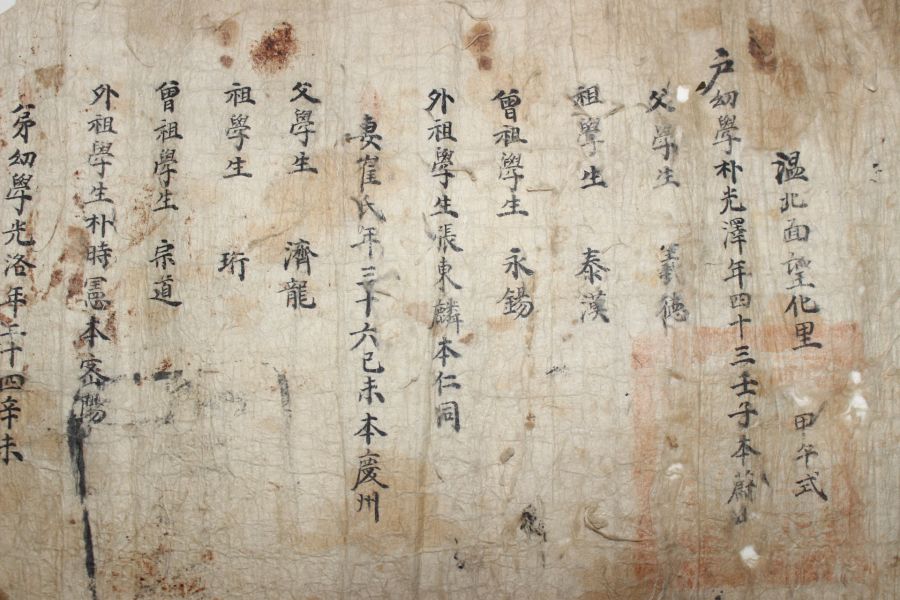 溫北面望化里 甲午式
戶幼學朴光澤年四十三壬子本蔚山
父學生 義德
祖學生 泰漢
曾祖學生 永錫
外祖學生張東麟本仁同
妻崔氏年三十六己未本慶州
父學生 濟龍
祖學生 珩
曾祖學生 宗道
外祖學生朴時憲本密陽
弟幼學光洛年二十四辛未